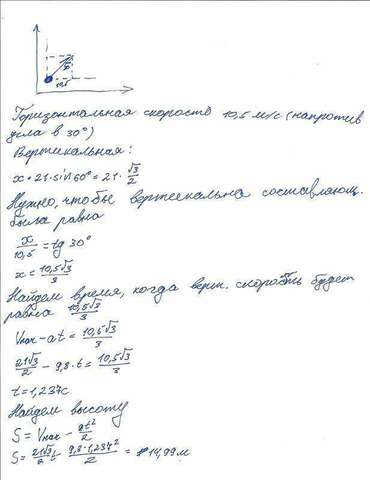 10,5
Горизонтальная скорость 10,5 м/с (напротив
угла в 30°)
Вертикальная:
x = 21·sin 60° = 21·√3/2
Нужно, чтобы вертикальна составляющ.
была равна
x/10,5 = tg 30°
x = 10,5√3/3
Найдем время, когда верт. скорость будет
равна 10,5√3/3
Vнач - at = 10,5√3/3
21√3/2 - 9,8·t = 10,5√3/3
t = 1,237c
Найдем высоту
S = Vнач - gt²/2
S = 21√3/2 t 9,8·1,237²/2 = 14,99 м